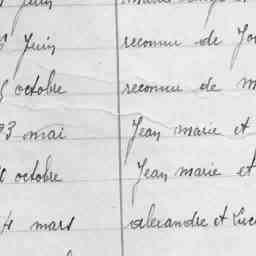 Juin
Juin reconnu de
octobre reconnu de
23 mai Jean marie et
octobre Jean marie et
4 mars alexandre et Luc